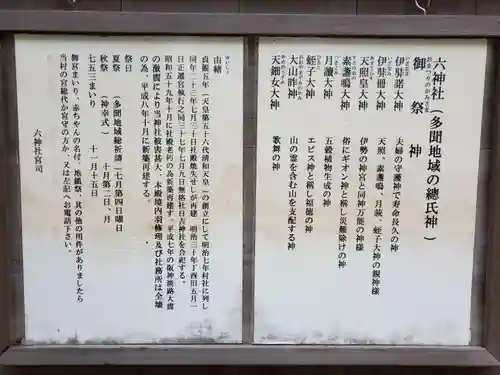 六神社(多聞地域の總氏神)
御祭神
伊弉諾大神　夫婦の守護神で寿命長久の神
伊弉冊大神　天照、素盞鳴、月読、蛭子大神の親神様
天照皇大神　伊勢の神宮と同神万能の神様
素盞鳴大神　俗にギオン神と称し災難除けの神
月讀大神　五穀植物生成の神
蛭子大神　エビス神と称し福徳の神
大山昨大神　山の霊を含む山を支配する神
天鈿女大神　歌舞の神
由緒
貞観五年(天皇第五十六代清和天皇)の創立にして明治七年村社に列し
同年二十三年七月三十日社殿焼失せしが再建、明治三十年丁酉旧五月一
日正遷宮執行之同三十七年七月九日無格社日吉神社を合祀する。
昭和五十九年十月に社殿老朽の為新築再建す。平成七年の阪神淡路大震
の激震により当神社被害甚大、本殿境内羽修理及び社務所は全壊
の為、平成八年十月に新築再建する。
祭日
夏祭　(多聞地域総祈禱)七月第四日曜日
秋祭　(神幸式)　十月第二日、月
七五三まいり　十一月十五日
御宮まいり、赤ちゃんの名付、地鎮祭、其の他の用件がありましたら
当村の宮総代か宮守の方か、又は左記へお電話下さい。
六神社宮司